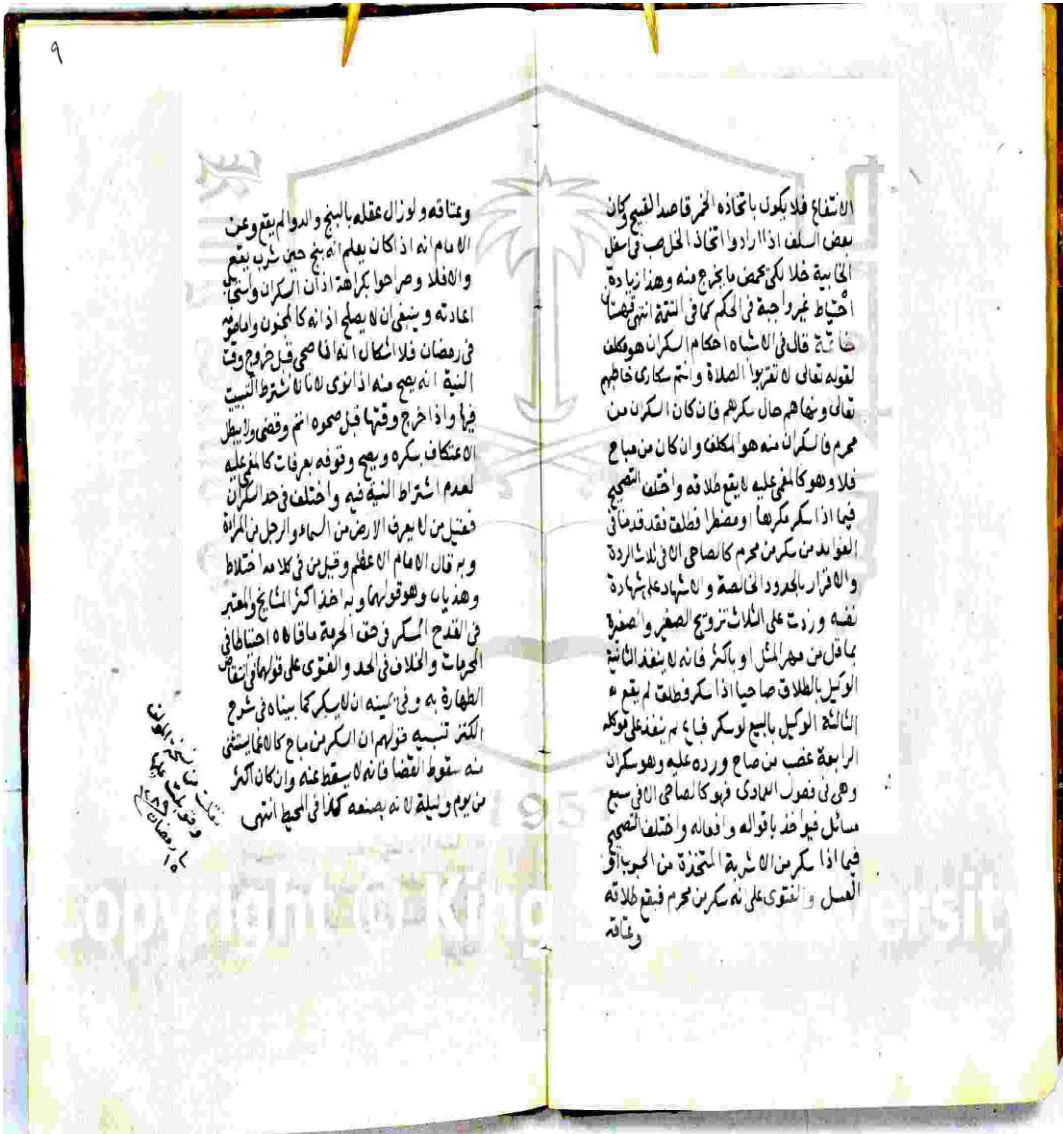 الانتفاع فلا يكون باتخاذه الخمر قاصد القبيح وكان
بعض السلف اذا ارادوا اتخاذ الخل صب فى اسفل
الخابية خلا لكى يحمض ما يخرج منه وهذا زيادة
احتياط غير واجبة فى الحكم كما فى التتمة انتهى
خاتمة قال فى الاشباه احكام السكران هو مكلف
لقوله تعالى لا تقربوا الصلاة وانتم سكارى خاطبهم
تعالى ونهاهم حال سكرهم فان كان السكران من
محرم فالسكران منه هو المكلف وان كان من مباح
فلا وهو كالمغمى عليه لا يقع طلاقه واختلف التصحيح
فيما اذا سكر مكرها او مضطرا فطلق فقد قدمنا فى
الفوايد من سكر من محرم كالصاحى الا فى ثلاث الردة
والاقرار بالحدود الخالصة والاشهاد على شهادة
نفسه وزدت على الثلاث تزويج الصغير والصغيرة
بما قل من مهر المثل او باكثر فانه لا ينفذ الثانية
الوكيل بالطلاق صاحيا اذا سكر فطلق لم يقع
الثالثة الوكيل بالبيع لو سكر فباع لم ينفذ على موكله
الرابعة غصب من صاح ورده عليه وهو سكران
وهى فى فصول العمادى فهو كالصاحى الا فى سبع
مسائل فيواخذ باقواله وافعاله واختلف التصحيح
فيما اذا سكر من الاشربة المتخذة من الحبوب او
العسل والفتوى على انه سكر من محرم فيقع طلاقه
وعتاقه
٩
وعتاقه ولو زال عقله بالبنج والدوا لم يقع وعن
الامام انه اذا كان يعلم انه بنج حين شرب يقع
والا فلا وصرحوا بكراهة اذان السكران واستحباب
اعادته وينبغى ان لا يصلح اذانه كالمجنون واما صومه
فى رمضان فلا اشكال انه اذا صحى قبل خروج وقت
النية انه يصح منه اذا نوى لانا لا نشترط التبييت
فيها واذا خرج وقتها قبل صحوه اثم وقضى ولا يبطل
الاعتكاف بسكره ويصح وقوفه بعرفات كالمغمى عليه
لعدم اشتراط النية فيه واختلف فى حد السكران
فقيل من لا يعرف الارض من السماء والرجل من المراة
وبه قال الامام الاعظم وقيل من فى كلامه اختلاط
وهذيان وهو قولهما وبه اخذ اكثر المشايخ والمعتبر
فى القدح المسكر فى حق الحرمة ما قالاه احتياطا فى
الحرمات والخلاف فى الحد والفتوى على قولهما فى انتقاض
الطهارة به وفى يمينه ان لا يسكر كما بيناه فى شرح
الكنز تنبيه قولهم ان السكر من مباح كالاغما يستثنى
منه سقوط القضا فانه لا يسقط عنه وان كان اكثر
من يوم وليلة لانه بصنعه كذا فى المحيط انتهى
نقلت من نسخة المولف
وقوبلت عليها
رمضان
١٥
1957
Copyright © King Saud University